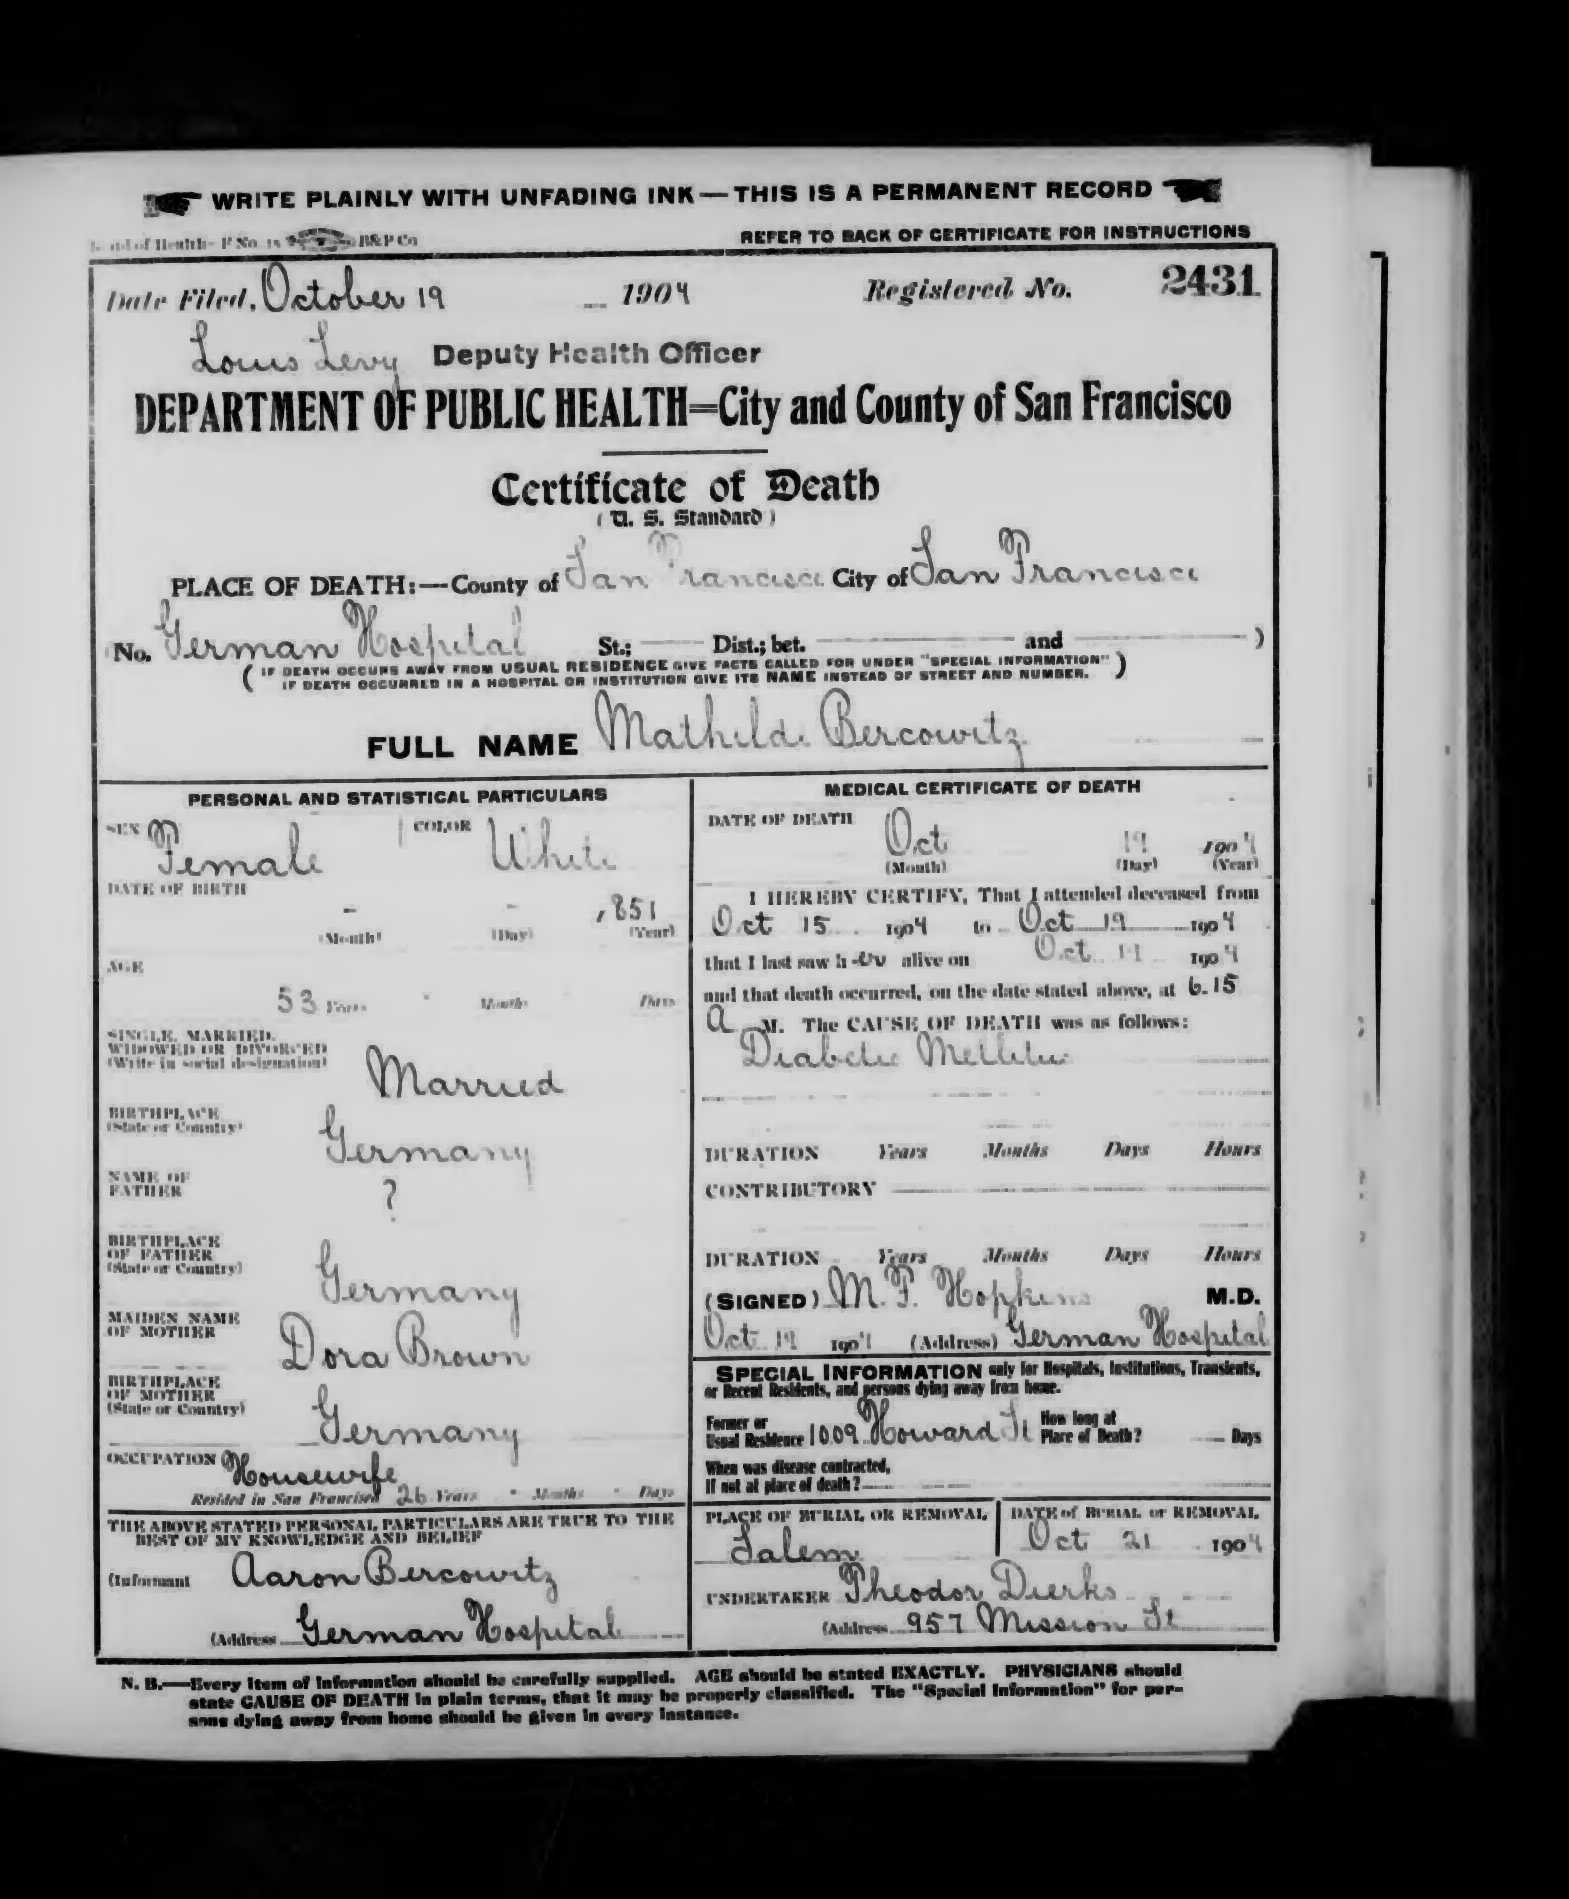 WRITE PLAINLY WITH UNFADING INK — THIS IS A PERMANENT RECORD
of Health- F No. 15 B&P Co
REFER TO BACK OF CERTIFICATE FOR INSTRUCTIONS
Date Filed, October 19 1904 Registered No. 2431
Louis Levy Deputy Health Officer
DEPARTMENT OF PUBLIC HEALTH=City and County of San Francisco
Certificate of Death
( U. S. Standard )
PLACE OF DEATH:—County of San Francisco City of San Francisco
No. German Hospital St.; Dist.; bet. and )
( IF DEATH OCCURS AWAY FROM USUAL RESIDENCE GIVE FACTS CALLED FOR UNDER "SPECIAL INFORMATION"
IF DEATH OCCURRED IN A HOSPITAL OR INSTITUTION GIVE ITS NAME INSTEAD OF STREET AND NUMBER. )
FULL NAME Mathilde Bercowitz
PERSONAL AND STATISTICAL PARTICULARS
SEX Female COLOR White
DATE OF BIRTH
- - 1851
(Month) (Day) (Year)
AGE
53 Years Months Days
SINGLE, MARRIED,
WIDOWED OR DIVORCED
(Write in social designation)
Married
BIRTHPLACE
(State or Country)
Germany
NAME OF
FATHER
?
BIRTHPLACE
OF FATHER
(State or Country)
Germany
MAIDEN NAME
OF MOTHER
Dora Brown
BIRTHPLACE
OF MOTHER
(State or Country)
Germany
OCCUPATION Housewife
Resided in San Francisco 26 Years Months Days
THE ABOVE STATED PERSONAL PARTICULARS ARE TRUE TO THE
BEST OF MY KNOWLEDGE AND BELIEF
(Informant Aaron Bercowitz
(Address German Hospital
MEDICAL CERTIFICATE OF DEATH
DATE OF DEATH
Oct 19 1904
(Month) (Day) (Year)
I HEREBY CERTIFY, That I attended deceased from
Oct 15 1904 to Oct 19 1904
that I last saw h er alive on Oct 19 1904
and that death occurred, on the date stated above, at 6.15
A M. The CAUSE OF DEATH was as follows:
Diabetes Mellitus
DURATION Years Months Days Hours
CONTRIBUTORY
DURATION Years Months Days Hours
(SIGNED) M. F. Hopkins M.D.
Oct 19 1904 (Address) German Hospital
SPECIAL INFORMATION only for Hospitals, Institutions, Transients,
or Recent Residents, and persons dying away from home.
Former or
Usual Residence 1009 Howard St How long at
Place of Death? Days
When was disease contracted,
If not at place of death?
PLACE OF BURIAL OR REMOVAL
Salem
DATE of BURIAL or REMOVAL
Oct 21 1904
UNDERTAKER Theodor Dierks
(Address 957 Mission St
N. B.—Every item of information should be carefully supplied. AGE should be stated EXACTLY. PHYSICIANS should
state CAUSE OF DEATH in plain terms, that it may be properly classified. The "Special Information" for per-
sons dying away from home should be given in every instance.